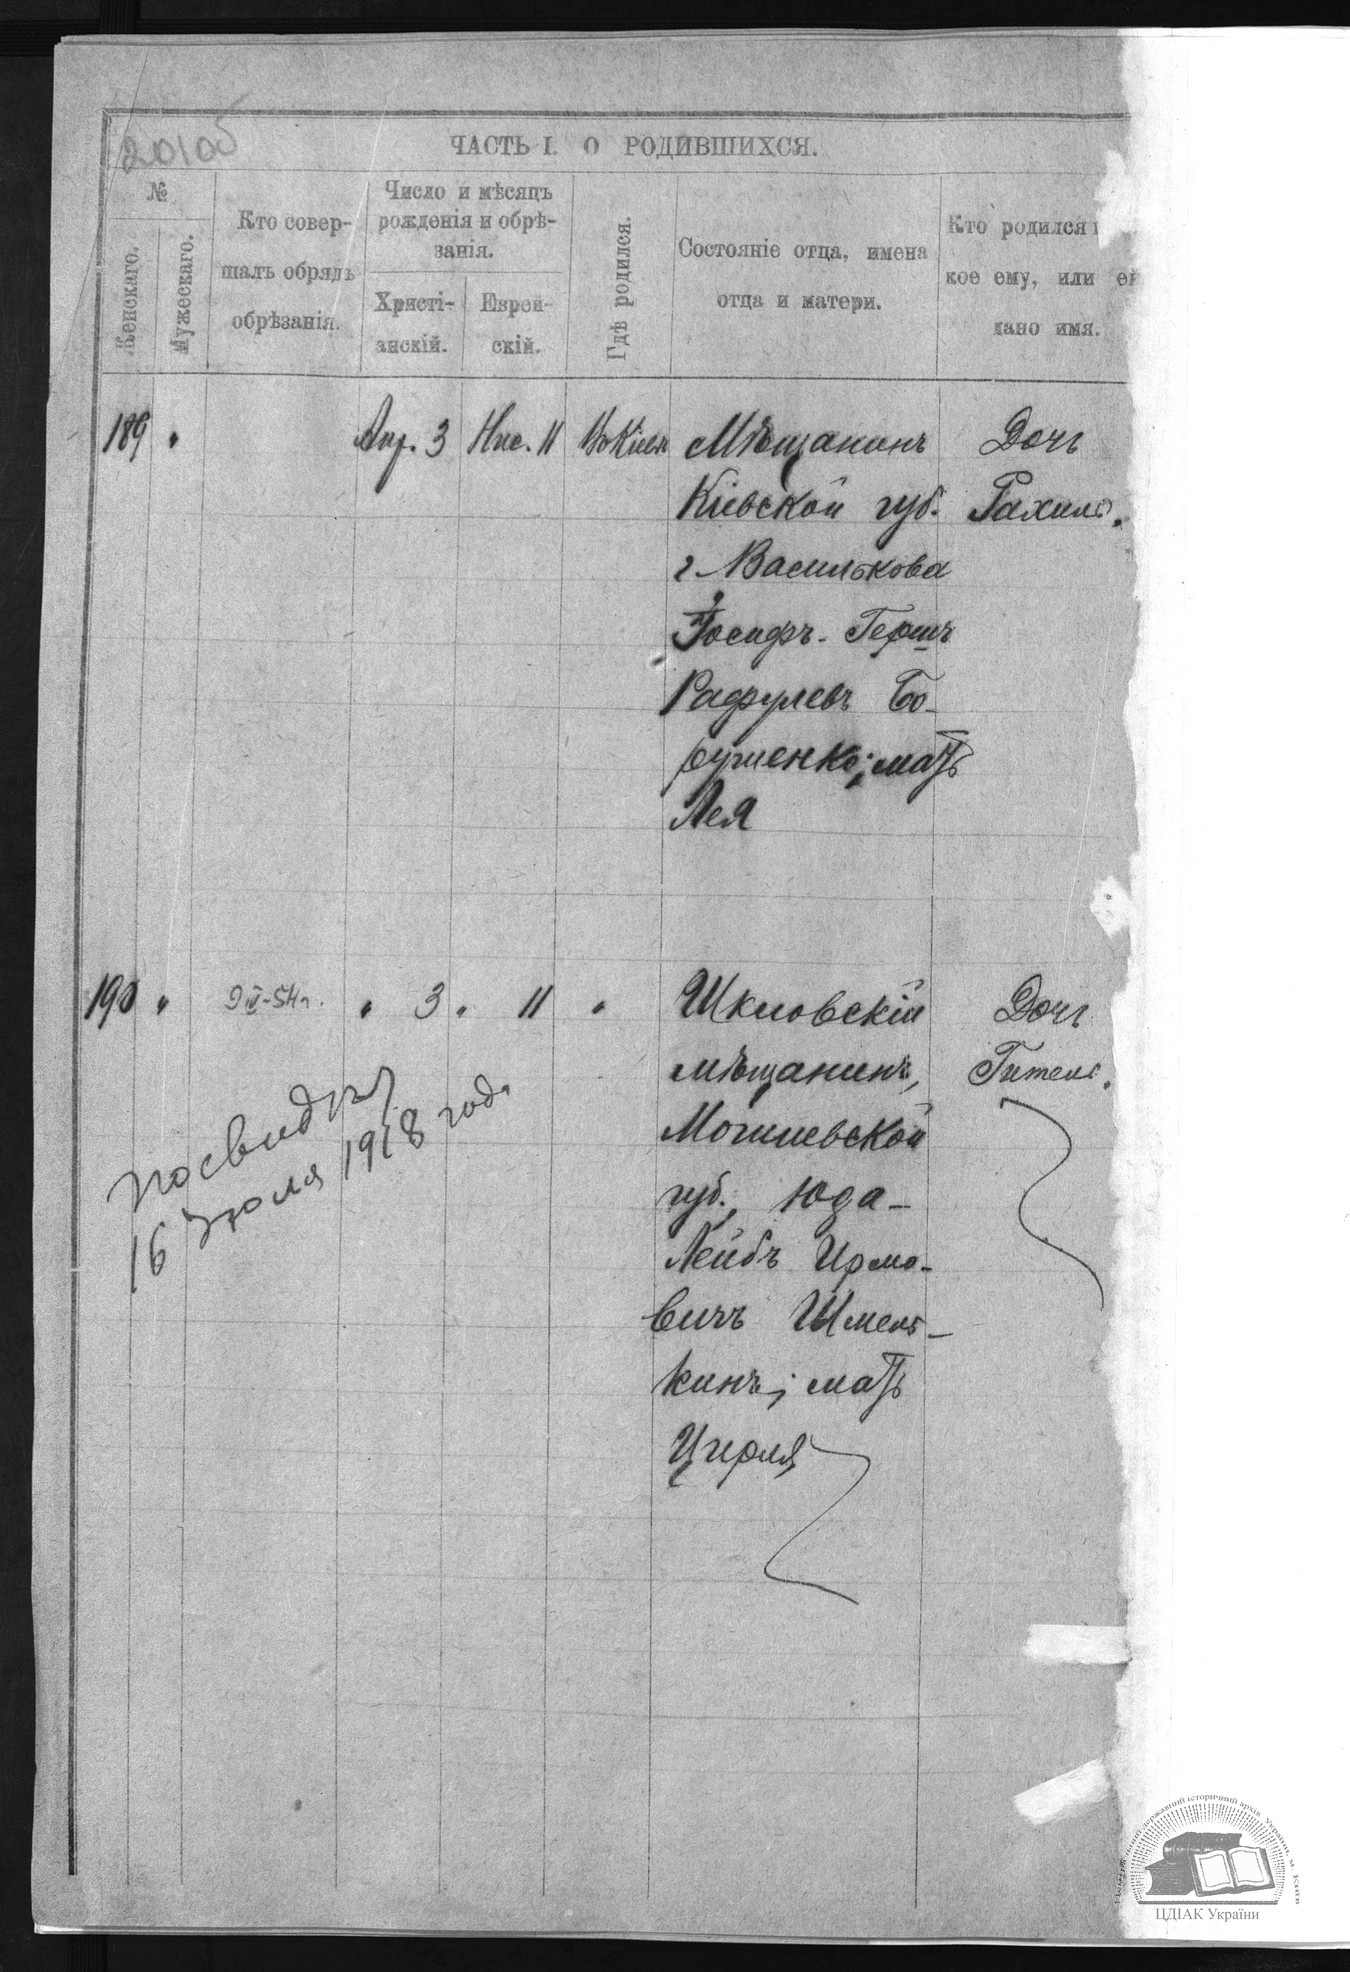 201об
ЧАСТЬ I. О РОДИВШИХСЯ.
№
Женскаго.
Мужескаго.
Кто совер-
шалъ обрядъ
обрѣзанія.
Число и мѣсяцъ
рожденія и обрѣ-
занія.
Христі-
анскій.
Еврей-
скій.
Гдѣ родился.
Состояніе отца, имена
отца и матери.
Кто родился и
кое ему, или ей
дано имя.
189 " Апр. 3 Нис. 11 Въ Кіевѣ Мѣщанинъ Дочь
Кіевской губ. Рахиль.
г. Василькова
Іосифъ-Гершъ
Рафулевъ Бо-
рушенко; мать
Лея
190 " 9 IV-54 г. " 3 " 11 " Шкловскій Дочь
мѣщанинъ, Гитель.
Могилевской
губ. Юда-
Лейбъ Ирмо-
вичъ Шмель-
кинъ; мать
Цирля
16 Іюля 1918 год.
ЦДІАК України